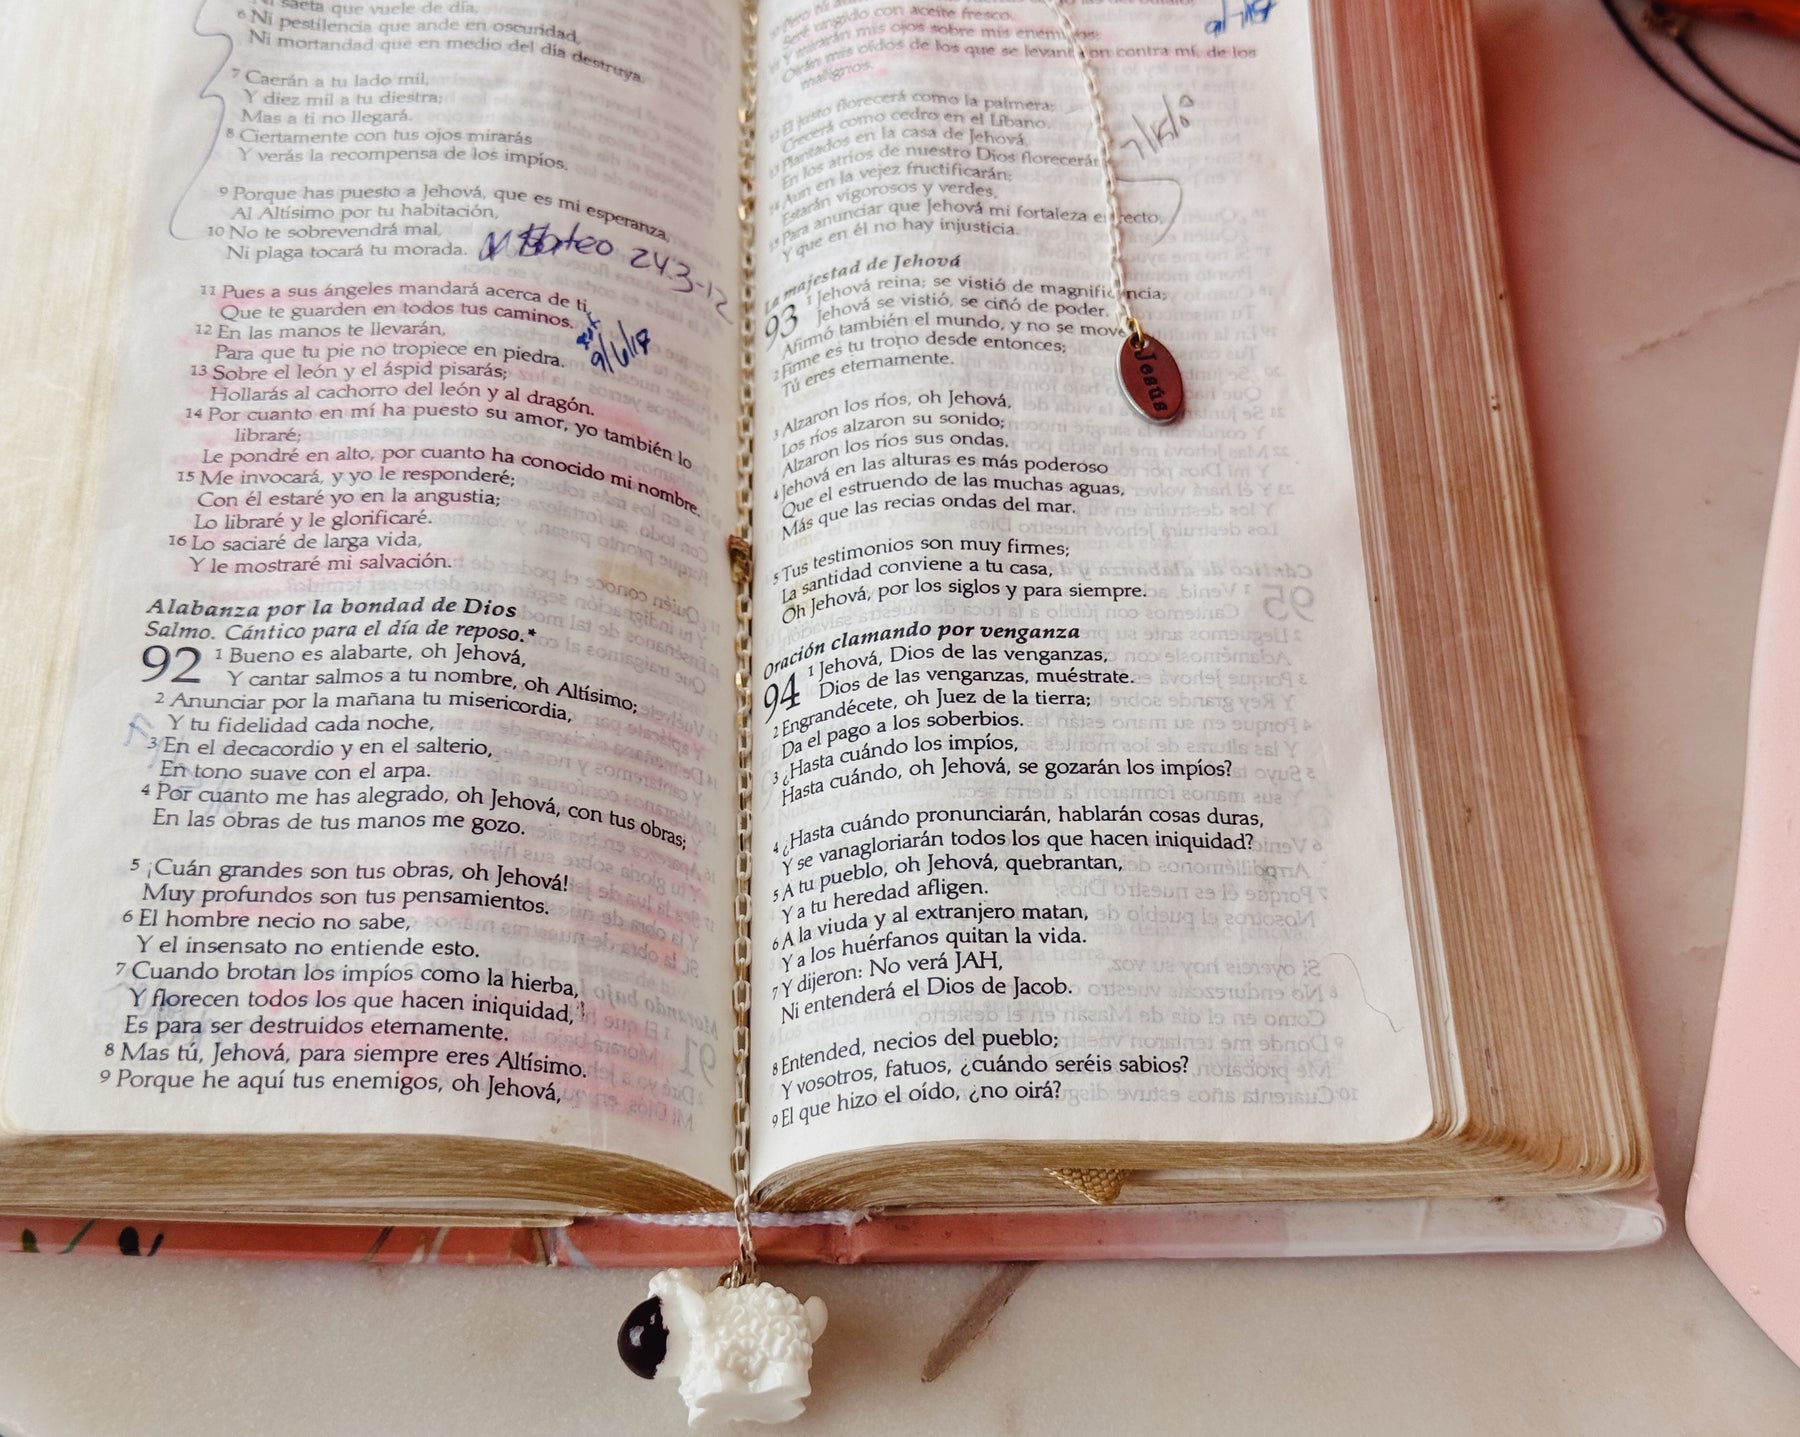 Ni saeta que vuele de día,
6 Ni pestilencia que ande en oscuridad,
Ni mortandad que en medio del día destruya.
7 Caerán a tu lado mil,
Y diez mil a tu diestra;
Mas a ti no llegará.
8 Ciertamente con tus ojos mirarás
Y verás la recompensa de los impíos.
9 Porque has puesto a Jehová, que es mi esperanza,
Al Altísimo por tu habitación,
10 No te sobrevendrá mal,
Ni plaga tocará tu morada.
Mateo 24:3-12
11 Pues a sus ángeles mandará acerca de ti,
Que te guarden en todos tus caminos.
12 En las manos te llevarán,
Para que tu pie no tropiece en piedra.
9/6/18
13 Sobre el león y el áspid pisarás;
Hollarás al cachorro del león y al dragón.
14 Por cuanto en mí ha puesto su amor, yo también lo
libraré;
Le pondré en alto, por cuanto ha conocido mi nombre.
15 Me invocará, y yo le responderé;
Con él estaré yo en la angustia;
Lo libraré y le glorificaré.
16 Lo saciaré de larga vida,
Y le mostraré mi salvación.
Alabanza por la bondad de Dios
Salmo. Cántico para el día de reposo.*
92 1 Bueno es alabarte, oh Jehová,
Y cantar salmos a tu nombre, oh Altísimo;
2 Anunciar por la mañana tu misericordia,
Y tu fidelidad cada noche,
3 En el decacordio y en el salterio,
En tono suave con el arpa.
4 Por cuanto me has alegrado, oh Jehová, con tus obras;
En las obras de tus manos me gozo.
5 ¡Cuán grandes son tus obras, oh Jehová!
Muy profundos son tus pensamientos.
6 El hombre necio no sabe,
Y el insensato no entiende esto.
7 Cuando brotan los impíos como la hierba,
Y florecen todos los que hacen iniquidad,
Es para ser destruidos eternamente.
8 Mas tú, Jehová, para siempre eres Altísimo.
9 Porque he aquí tus enemigos, oh Jehová,
Seré ungido con aceite fresco.
11 Y mirarán mis ojos sobre mis enemigos;
Oirán mis oídos de los que se levantaron contra mí, de los
malignos.
12 El justo florecerá como la palmera;
Crecerá como cedro en el Líbano.
13 Plantados en la casa de Jehová,
En los atrios de nuestro Dios florecerán
14 Aun en la vejez fructificarán;
Estarán vigorosos y verdes,
15 Para anunciar que Jehová mi fortaleza es recto,
Y que en él no hay injusticia.
La majestad de Jehová
93 1 Jehová reina; se vistió de magnificencia;
Jehová se vistió, se ciñó de poder.
Afirmó también el mundo, y no se move
2 Firme es tu trono desde entonces;
Tú eres eternamente.
Jesús
3 Alzaron los ríos, oh Jehová,
Los ríos alzaron su sonido;
Alzaron los ríos sus ondas.
4 Jehová en las alturas es más poderoso
Que el estruendo de las muchas aguas,
Más que las recias ondas del mar.
5 Tus testimonios son muy firmes;
La santidad conviene a tu casa,
Oh Jehová, por los siglos y para siempre.
Oración clamando por venganza
94 1 Jehová, Dios de las venganzas,
Dios de las venganzas, muéstrate.
2 Engrandécete, oh Juez de la tierra;
Da el pago a los soberbios.
3 ¿Hasta cuándo los impíos,
Hasta cuándo, oh Jehová, se gozarán los impíos?
4 ¿Hasta cuándo pronunciarán, hablarán cosas duras,
Y se vanagloriarán todos los que hacen iniquidad?
5 A tu pueblo, oh Jehová, quebrantan,
Y a tu heredad afligen.
6 A la viuda y al extranjero matan,
Y a los huérfanos quitan la vida.
7 Y dijeron: No verá JAH,
Ni entenderá el Dios de Jacob.
8 Entended, necios del pueblo;
Y vosotros, fatuos, ¿cuándo seréis sabios?
9 El que hizo el oído, ¿no oirá?